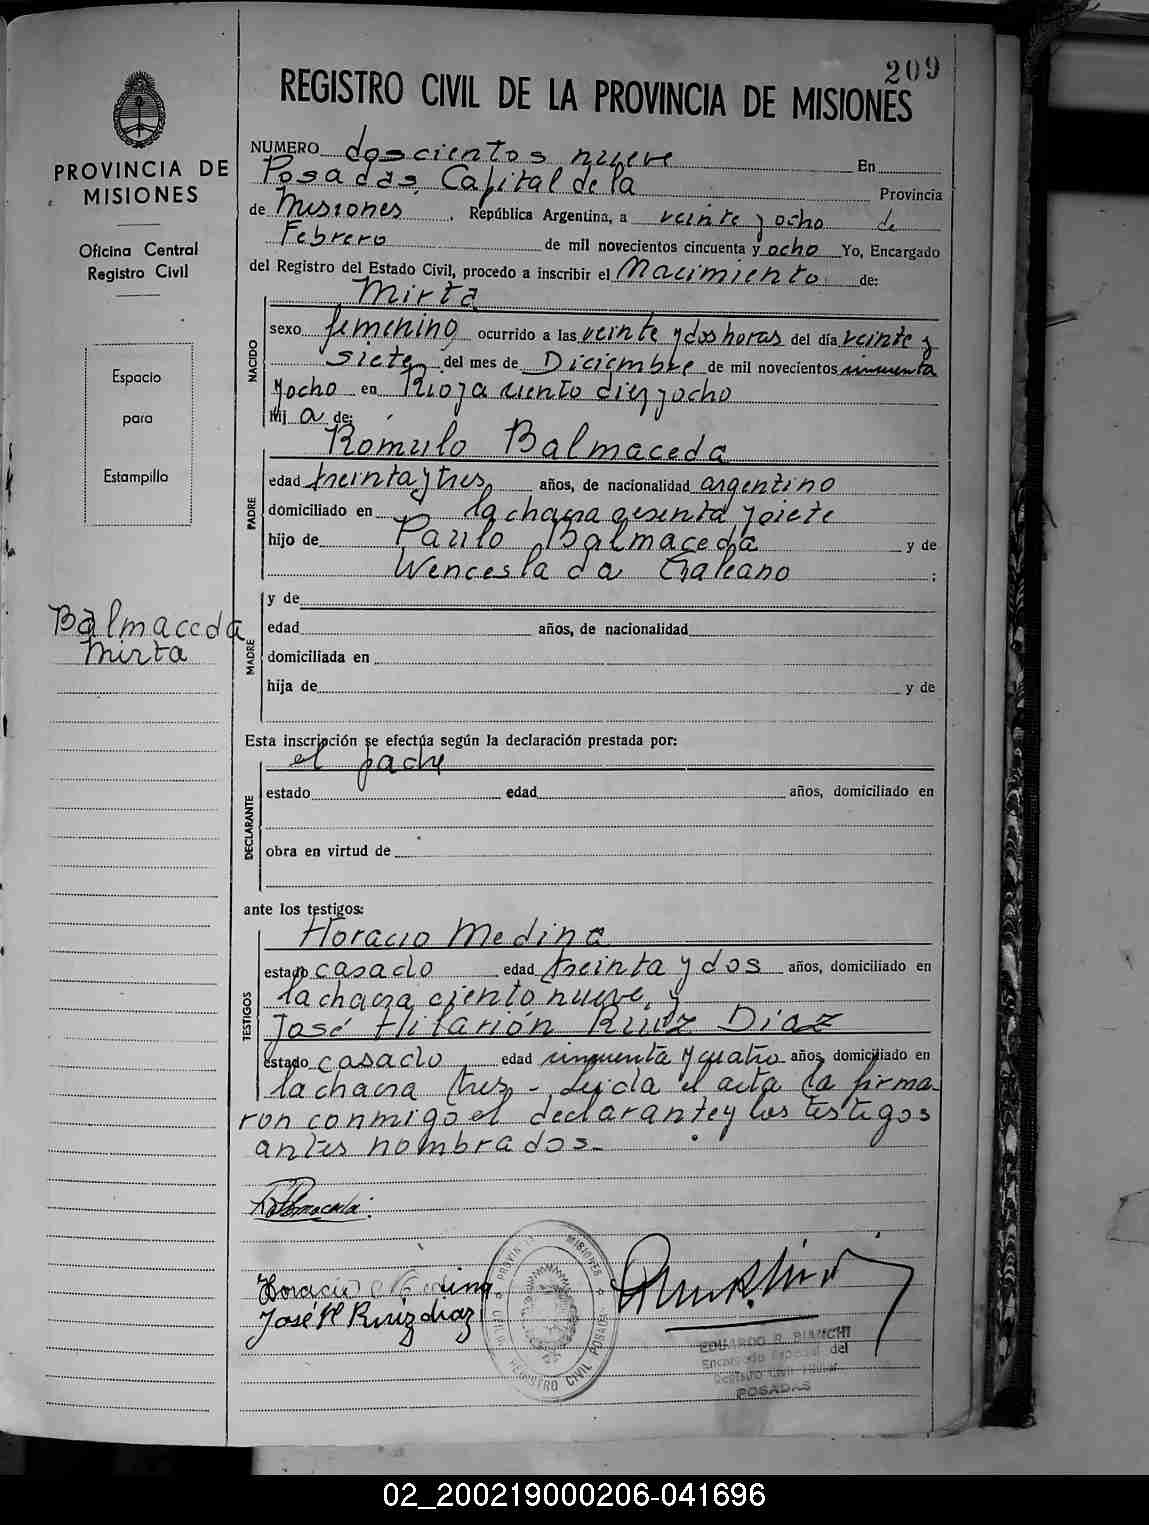 209
REGISTRO CIVIL DE LA PROVINCIA DE MISIONES
PROVINCIA DE
MISIONES
Oficina Central
Registro Civil
Espacio
para
Estampillo
Balmaceda
Mirta
NUMERO doscientos nueve En
Posadas, Capital de la Provincia
de Misiones, República Argentina, a veinte y ocho de
Febrero de mil novecientos cincuenta y ocho Yo, Encargado
del Registro del Estado Civil, procedo a inscribir el Nacimiento de:
NACIDO
Mirta
sexo femenino ocurrido a las veinte y dos horas del día veinte y
siete del mes de Diciembre de mil novecientos cincuenta
y ocho en Rioja ciento diez y ocho
Hij a de:
PADRE
Rómulo Balmaceda
edad treinta y tres años, de nacionalidad argentino
domiciliado en la chacra sesenta y siete
hijo de Paulo Balmaceda y de
Wenceslada Galeano ;
MADRE
y de
edad años, de nacionalidad
domiciliada en
hija de y de
Esta inscripción se efectúa según la declaración prestada por:
DECLARANTE
el padre
estado edad años, domiciliado en
obra en virtud de
ante los testigos:
TESTIGOS
Horacio Medina
estado casado edad treinta y dos años, domiciliado en
la chacra ciento nueve, y
José Hilarión Ruiz Diaz
estado casado edad cincuenta y cuatro años, domiciliado en
la chacra tres - Leida el acta la firma-
ron conmigo el declarante y los testigos
antes nombrados.-
RBalmaceda.
Horacio Medina
José H Ruiz diaz
PROVINCIA MISIONES
REGISTRO CIVIL POSADAS
EDUARDO R. BIANCHI
Encargado Especial del
Registro Civil
POSADAS
02_200219000206-041696